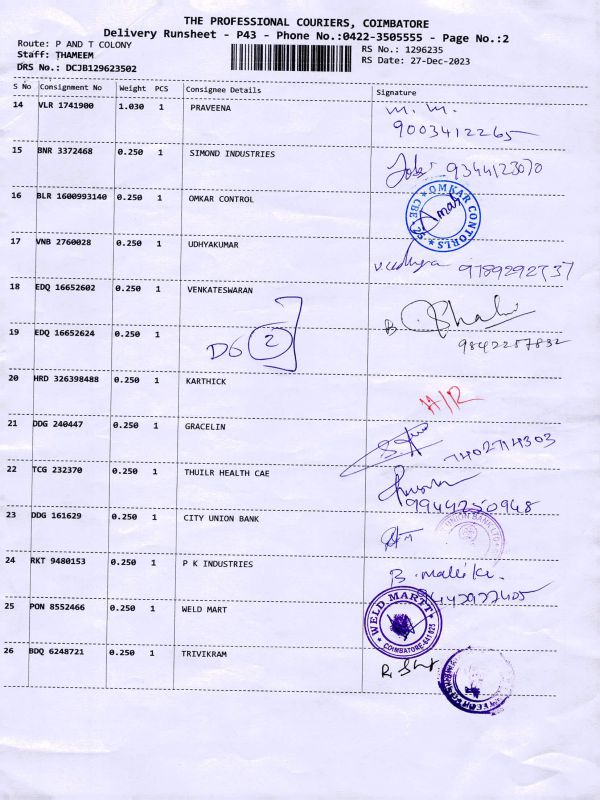 THE PROFESSIONAL COURIERS, COIMBATORE
Delivery Runsheet - P43 - Phone No.:0422-3505555 - Page No.:2
Route: P AND T COLONY
Staff: THAMEEM
DRS No.: DCJB129623502
RS No.: 1296235
RS Date: 27-Dec-2023
S No Consignment No Weight PCS Consignee Details Signature
14 VLR 1741900 1.030 1 PRAVEENA M. M.
9003412265
15 BNR 3372468 0.250 1 SIMOND INDUSTRIES 9344123070
16 BLR 1600993140 0.250 1 OMKAR CONTROL
OMKAR CONTORLS * CBE-25 *
17 VNB 2760028 0.250 1 UDHYAKUMAR
9789292737
18 EDQ 16652602 0.250 1 VENKATESWARAN
B
19 EDQ 16652624 0.250 1 9842257832
DG 2
20 HRD 326398488 0.250 1 KARTHICK
H/R
21 DDG 240447 0.250 1 GRACELIN
7402714303
22 TCG 232370 0.250 1 THUILR HEALTH CAE
9944250948
23 DDG 161629 0.250 1 CITY UNION BANK
UNION BANK LTD
24 RKT 9480153 0.250 1 P K INDUSTRIES
B. Mallika.
25 PON 8552466 0.250 1 WELD MART
WELD MARTT
COIMBATORE-641 025
26 BDQ 6248721 0.250 1 TRIVIKRAM